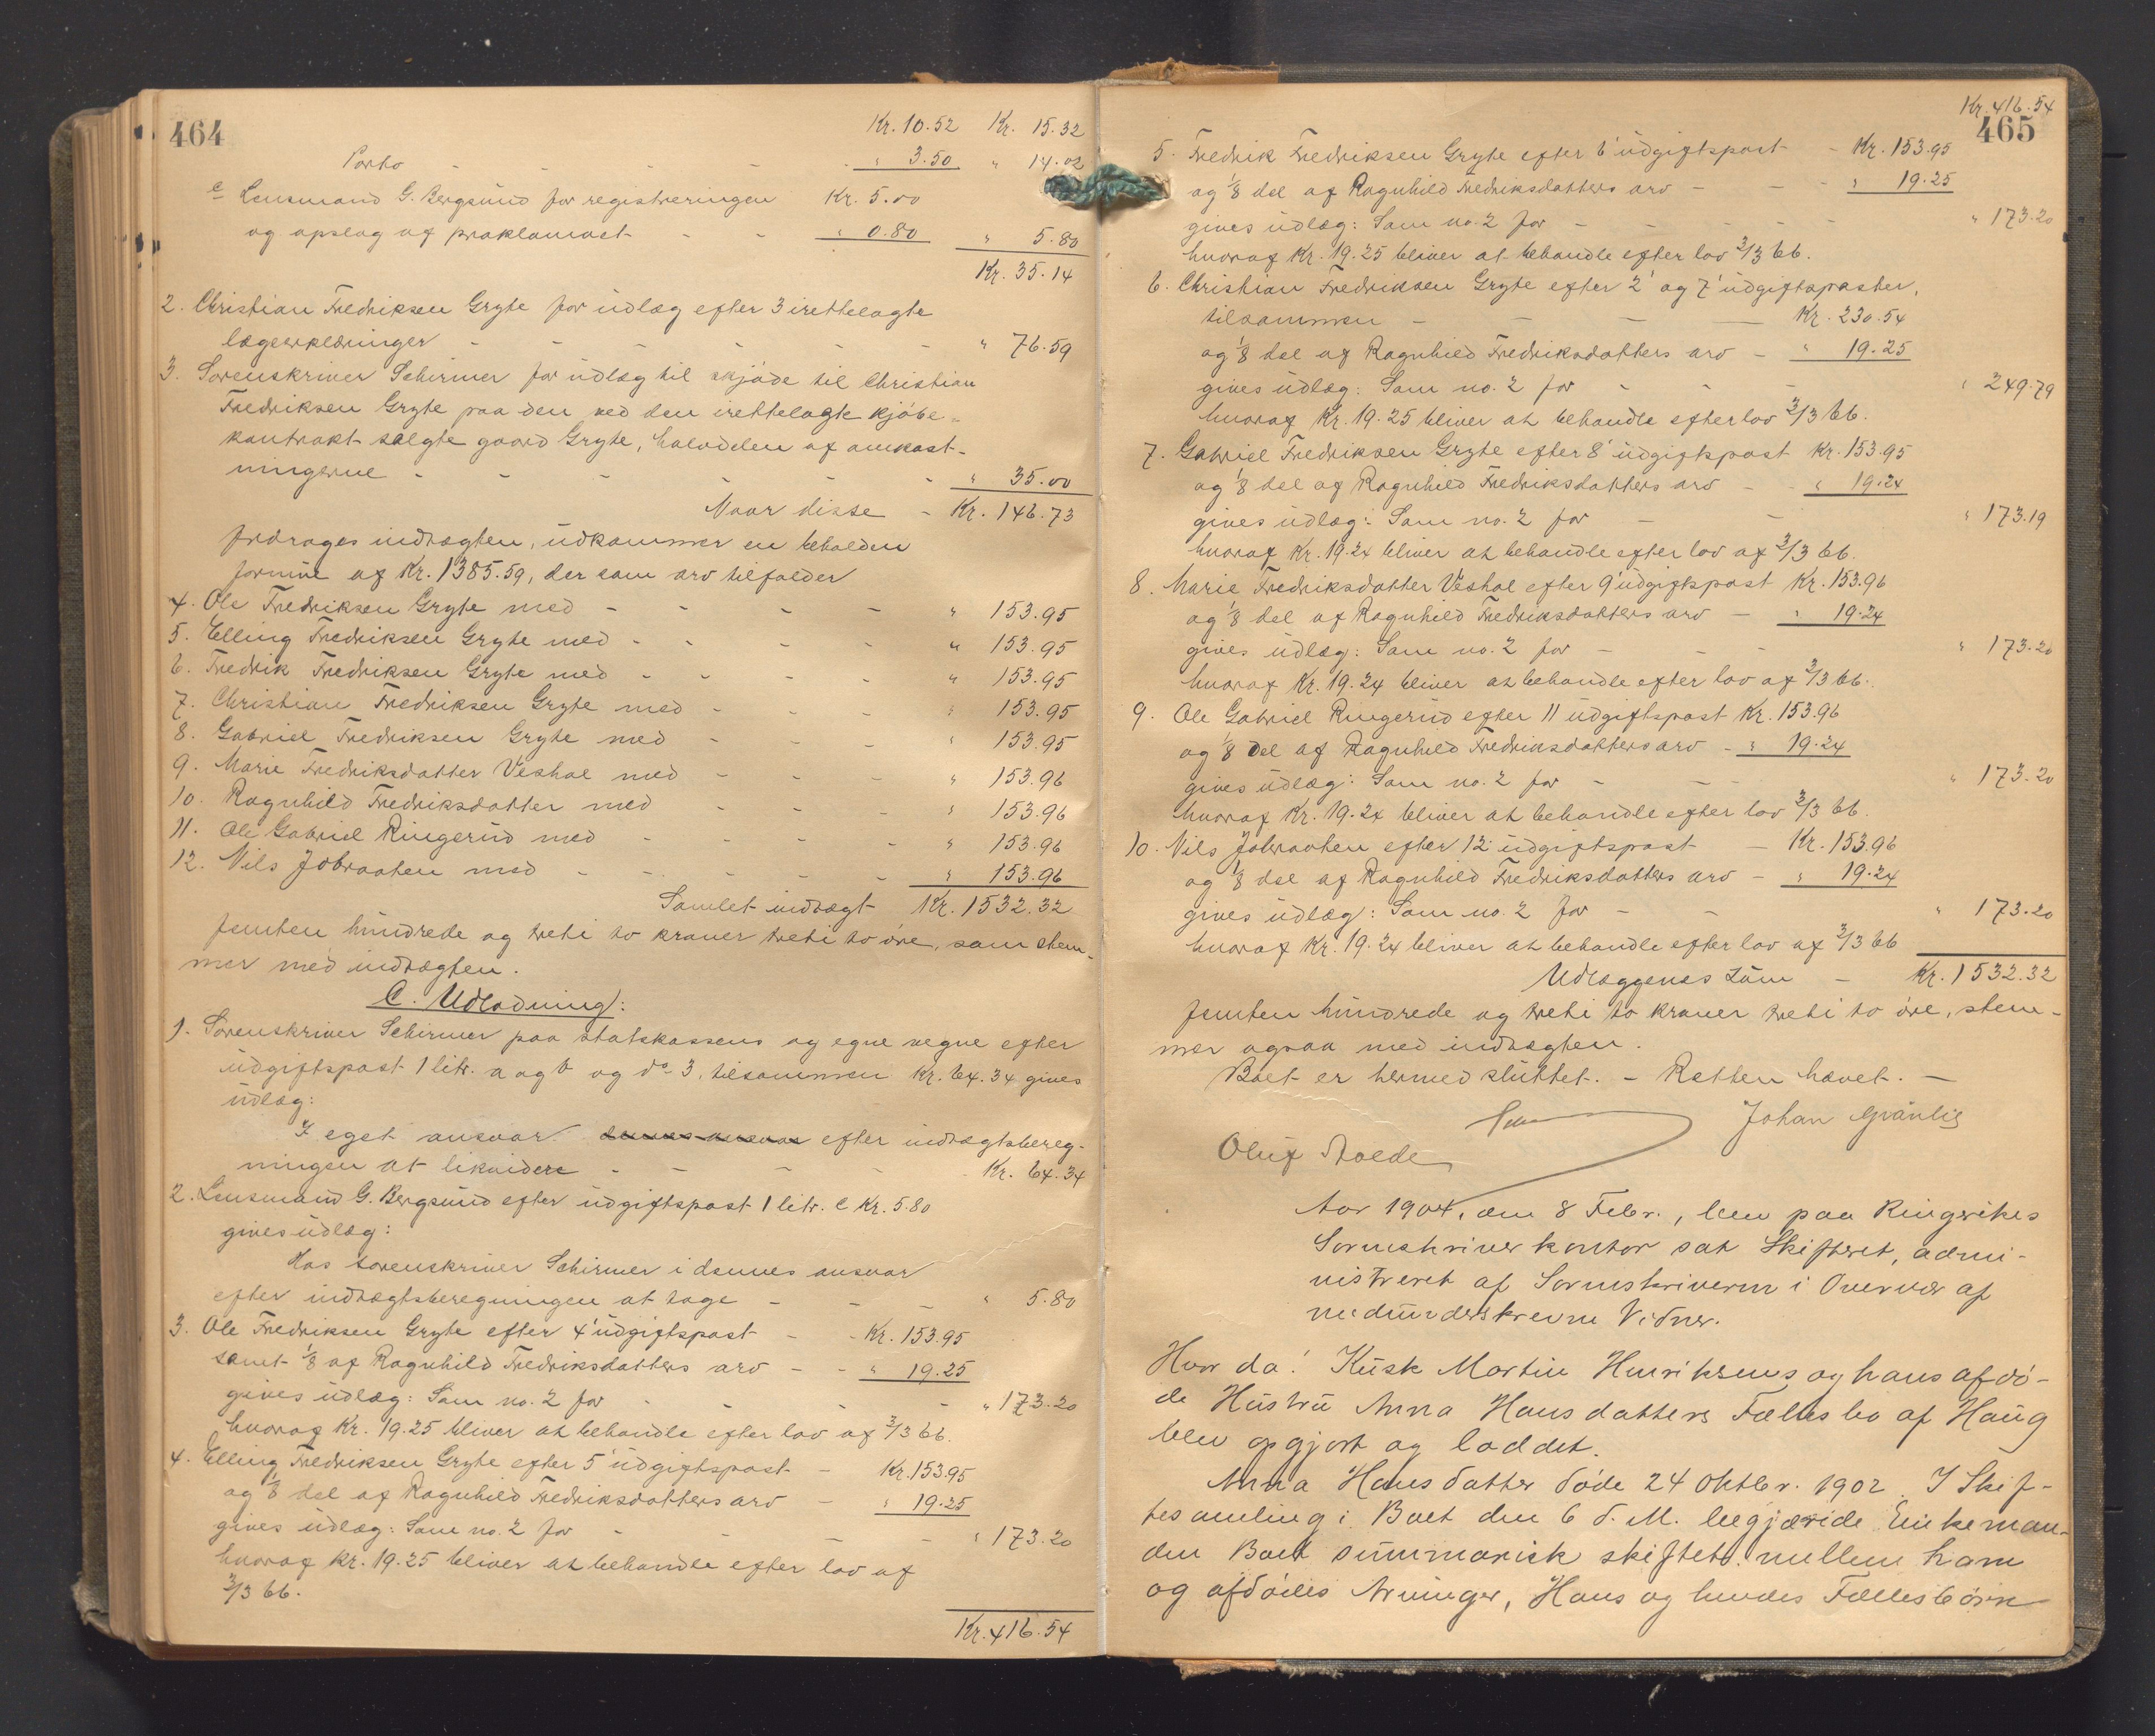 464
Kr. 10.52 Kr. 15.32
Porto - - - - " 3.50 " 14.02
c Lensmand G. Bergsund for registreringen Kr. 5.00
og opslag af proklamaet - - " 0.80 " 5.80
Kr. 35.14
2. Christian Fredriksen Gryte for udlæg efter 3 irettelagte
lægeerklæringer - - - - - " 76.59
3. Sorenskriver Schirmer for udlæg til skjøde til Christian
Fredriksen Gryte paa den ved den irettelagte kjøbe-
kontrakt solgte gaard Gryte, halvdelen af omkost-
ningerne - - - - - " 35.00
Naar disse - Kr. 146.73
fradrages indtægten, udkommer en beholden
formue af Kr. 1385.59, der som arv tilfalder
4. Ole Fredriksen Gryte med - - - - " 153.95
5. Elling Fredriksen Gryte med - - - - " 153.95
6. Fredrik Fredriksen Gryte med - - - - " 153.95
7. Christian Fredriksen Gryte med - - - " 153.95
8. Gabriel Fredriksen Gryte med - - - " 153.95
9. Marie Fredriksdatter Veshol med - - - " 153.96
10. Ragnhild Fredriksdatter med - - - " 153.96
11. Ole Gabriel Ringerud med - - - - " 153.96
12. Nils Jobraaten med - - - - - " 153.96
Samlet indtægt Kr. 1532.32
femten hundrede og treti to kroner treti to øre, som stem-
mer med indtægten.
C. Udlodning:
1. Sorenskriver Schirmer paa statskassens og egne vegne efter
udgiftspost 1 litr. a og b og do 3, tilsammen Kr. 64.34 gives
udlæg:
I eget ansvar dennes ansvar efter indtægtsbereg-
ningen at likvidere - - - - Kr. 64.34
2. Lensmand G. Bergsund efter udgiftspost 1 litr. c Kr. 5.80
gives udlæg:
Hos sorenskriver Schirmer i dennes ansvar
efter indtægtsberegningen at tage - - - " 5.80
3. Ole Fredriksen Gryte efter 4' udgiftspost - - Kr. 153.95
samt 1/8 af Ragnhild Fredriksdatters arv - - " 19.25
gives udlæg: Som no. 2 for - - - - " 173.20
hvoraf Kr. 19.25 bliver at behandle efter lov af 3/3 66.
4. Elling Fredriksen Gryte efter 5' udgiftspost - Kr. 153.95
og 1/8 del af Ragnhild Fredriksdatters arv - " 19.25
gives udlæg: Som no. 2 for - - - - " 173.20
hvoraf Kr. 19.25 bliver at behandle efter lov af
3/3 66.
Kr. 416.54
Kr. 416.54
465
5. Fredrik Fredriksen Gryte efter 6' udgiftspost - Kr. 153.95
og 1/8 del af Ragnhild Fredriksdatters arv - - - " 19.25
gives udlæg: Som no. 2 for - - - - " 173.20
hvoraf Kr. 19.25 bliver at behandle efter lov 3/3 66.
6. Christian Fredriksen Gryte efter 2' og 7' udgiftsposter,
tilsammen - - - - Kr. 230.54
og 1/8 del af Ragnhild Fredriksdatters arv - " 19.25
gives udlæg: Som no. 2 for - - - " 249.79
hvoraf Kr. 19.25 bliver at behandle efter lov 3/3 66.
7. Gabriel Fredriksen Gryte efter 8' udgiftspost Kr. 153.95
og 1/8 del af Ragnhild Fredriksdatters arv - - " 19.24
gives udlæg: Som no. 2 for - - " 173.19
hvoraf Kr. 19.24 bliver at behandle efter lov af 3/3 66.
8. Marie Fredriksdatter Veshol efter 9' udgiftspost Kr. 153.96
og 1/8 del af Ragnhild Fredriksdatters arv - " 19.24
gives udlæg: Som no. 2 for - - - " 173.20
hvoraf Kr. 19.24 bliver at behandle efter lov af 3/3 66.
9. Ole Gabriel Ringerud efter 11 udgiftspost Kr. 153.96
og 1/8 del af Ragnhild Fredriksdatters arv - " 19.24
gives udlæg: Som no. 2 for - - - " 173.20
hvoraf Kr. 19.24 bliver at behandle efter lov 3/3 66.
10. Nils Jobraaten efter 12' udgiftspost - Kr. 153.96
og 1/8 del af Ragnhild Fredriksdatters arv - " 19.24
gives udlæg: Som no. 2 for - - " 173.20
hvoraf Kr. 19.24 bliver at behandle efter lov af 3/3 66
Udlæggenes sum - Kr. 1532.32
femten hundrede og treti to kroner treti to øre, stem-
mer ogsaa med indtægten.
Boet er hermed sluttet. - Retten hævet. -
Johan Granlie
Oluf Stolde
Aar 1904, den 8 Febr., blev paa Ringerikes
Sorenskriverkontor sat Skifteret, admi-
nistreret af Sorenskriveren i Overvær af
nedunderskrevne Vidner.
Hvor da: Kusk Martin Henriksens og hans afdø-
de Hustru Anna Hansdatters Fællesbo af Haug
blev opgjort og loddet.
Anna Hansdatter døde 24 Oktbr. 1902. I Skif-
tesamling i Boet den 6 d. M. begjærede Enkeman-
den Boet summarisk skiftet mellem ham
og afdødes Arvinger, Hans og hendes Fællesbørn